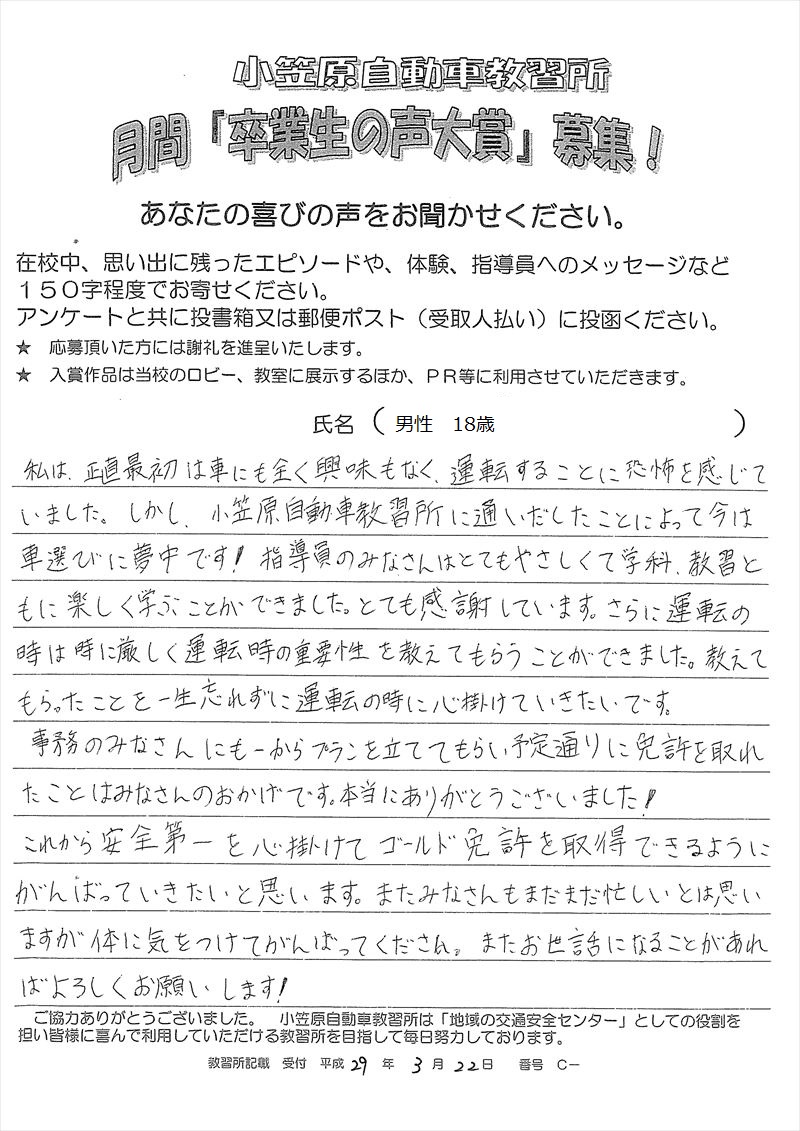 小笠原自動車教習所
月間『卒業生の声大賞』募集！
あなたの喜びの声をお聞かせください。
在校中、思い出に残ったエピソードや、体験、指導員へのメッセージなど
１５０字程度でお寄せください。
アンケートと共に投書箱又は郵便ポスト（受取人払い）に投函ください。
★　応募頂いた方には謝礼を進呈いたします。
★　入賞作品は当校のロビー、教室に展示するほか、ＰＲ等に利用させていただきます。
氏名（ 男性　18歳 ）
私は、正直最初は車にも全く興味もなく、運転することに恐怖を感じて
いました。しかし、小笠原自動車教習所に通いだしたことによって今は
車選びに夢中です！指導員のみなさんはとてもやさしくて学科、教習と
もに楽しく学ぶことができました。とても感謝しています。さらに運転の
時は時に厳しく運転時の重要性を教えてもらうことができました。教えて
もらったことを一生忘れずに運転の時に心掛けていきたいです。
事務のみなさんにも一からプランを立ててもらい予定通りに免許を取れ
たことはみなさんのおかげです。本当にありがとうございました！
これから安全第一を心掛けてゴールド免許を取得できるように
がんばっていきたいと思います。またみなさんもまだまだ忙しいとは思い
ますが体に気をつけてがんばってください。またお世話になることがあれ
ばよろしくお願いします！
ご協力ありがとうございました。　小笠原自動車教習所は「地域の交通安全センター」としての役割を
担い皆様に喜んで利用していただける教習所を目指して毎日努力しております。
教習所記載　受付　平成 29 年 3 月 22 日　番号　C－